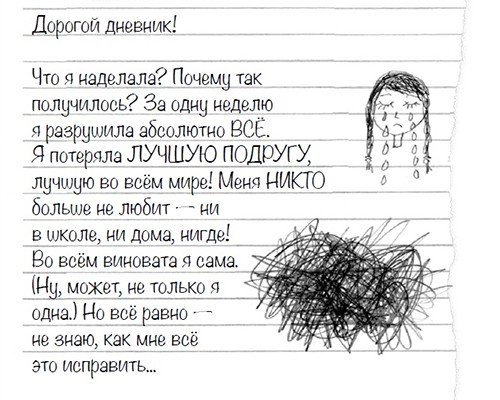 Дорогой дневник!
Что я наделала? Почему так
получилось? За одну неделю
я разрушила абсолютно ВСЁ.
Я потеряла ЛУЧШУЮ ПОДРУГУ,
лучшую во всём мире! Меня НИКТО
больше не любит — ни
в школе, ни дома, нигде!
Во всём виновата я сама.
(Ну, может, не только я
одна.) Но всё равно —
не знаю, как мне всё
это исправить...